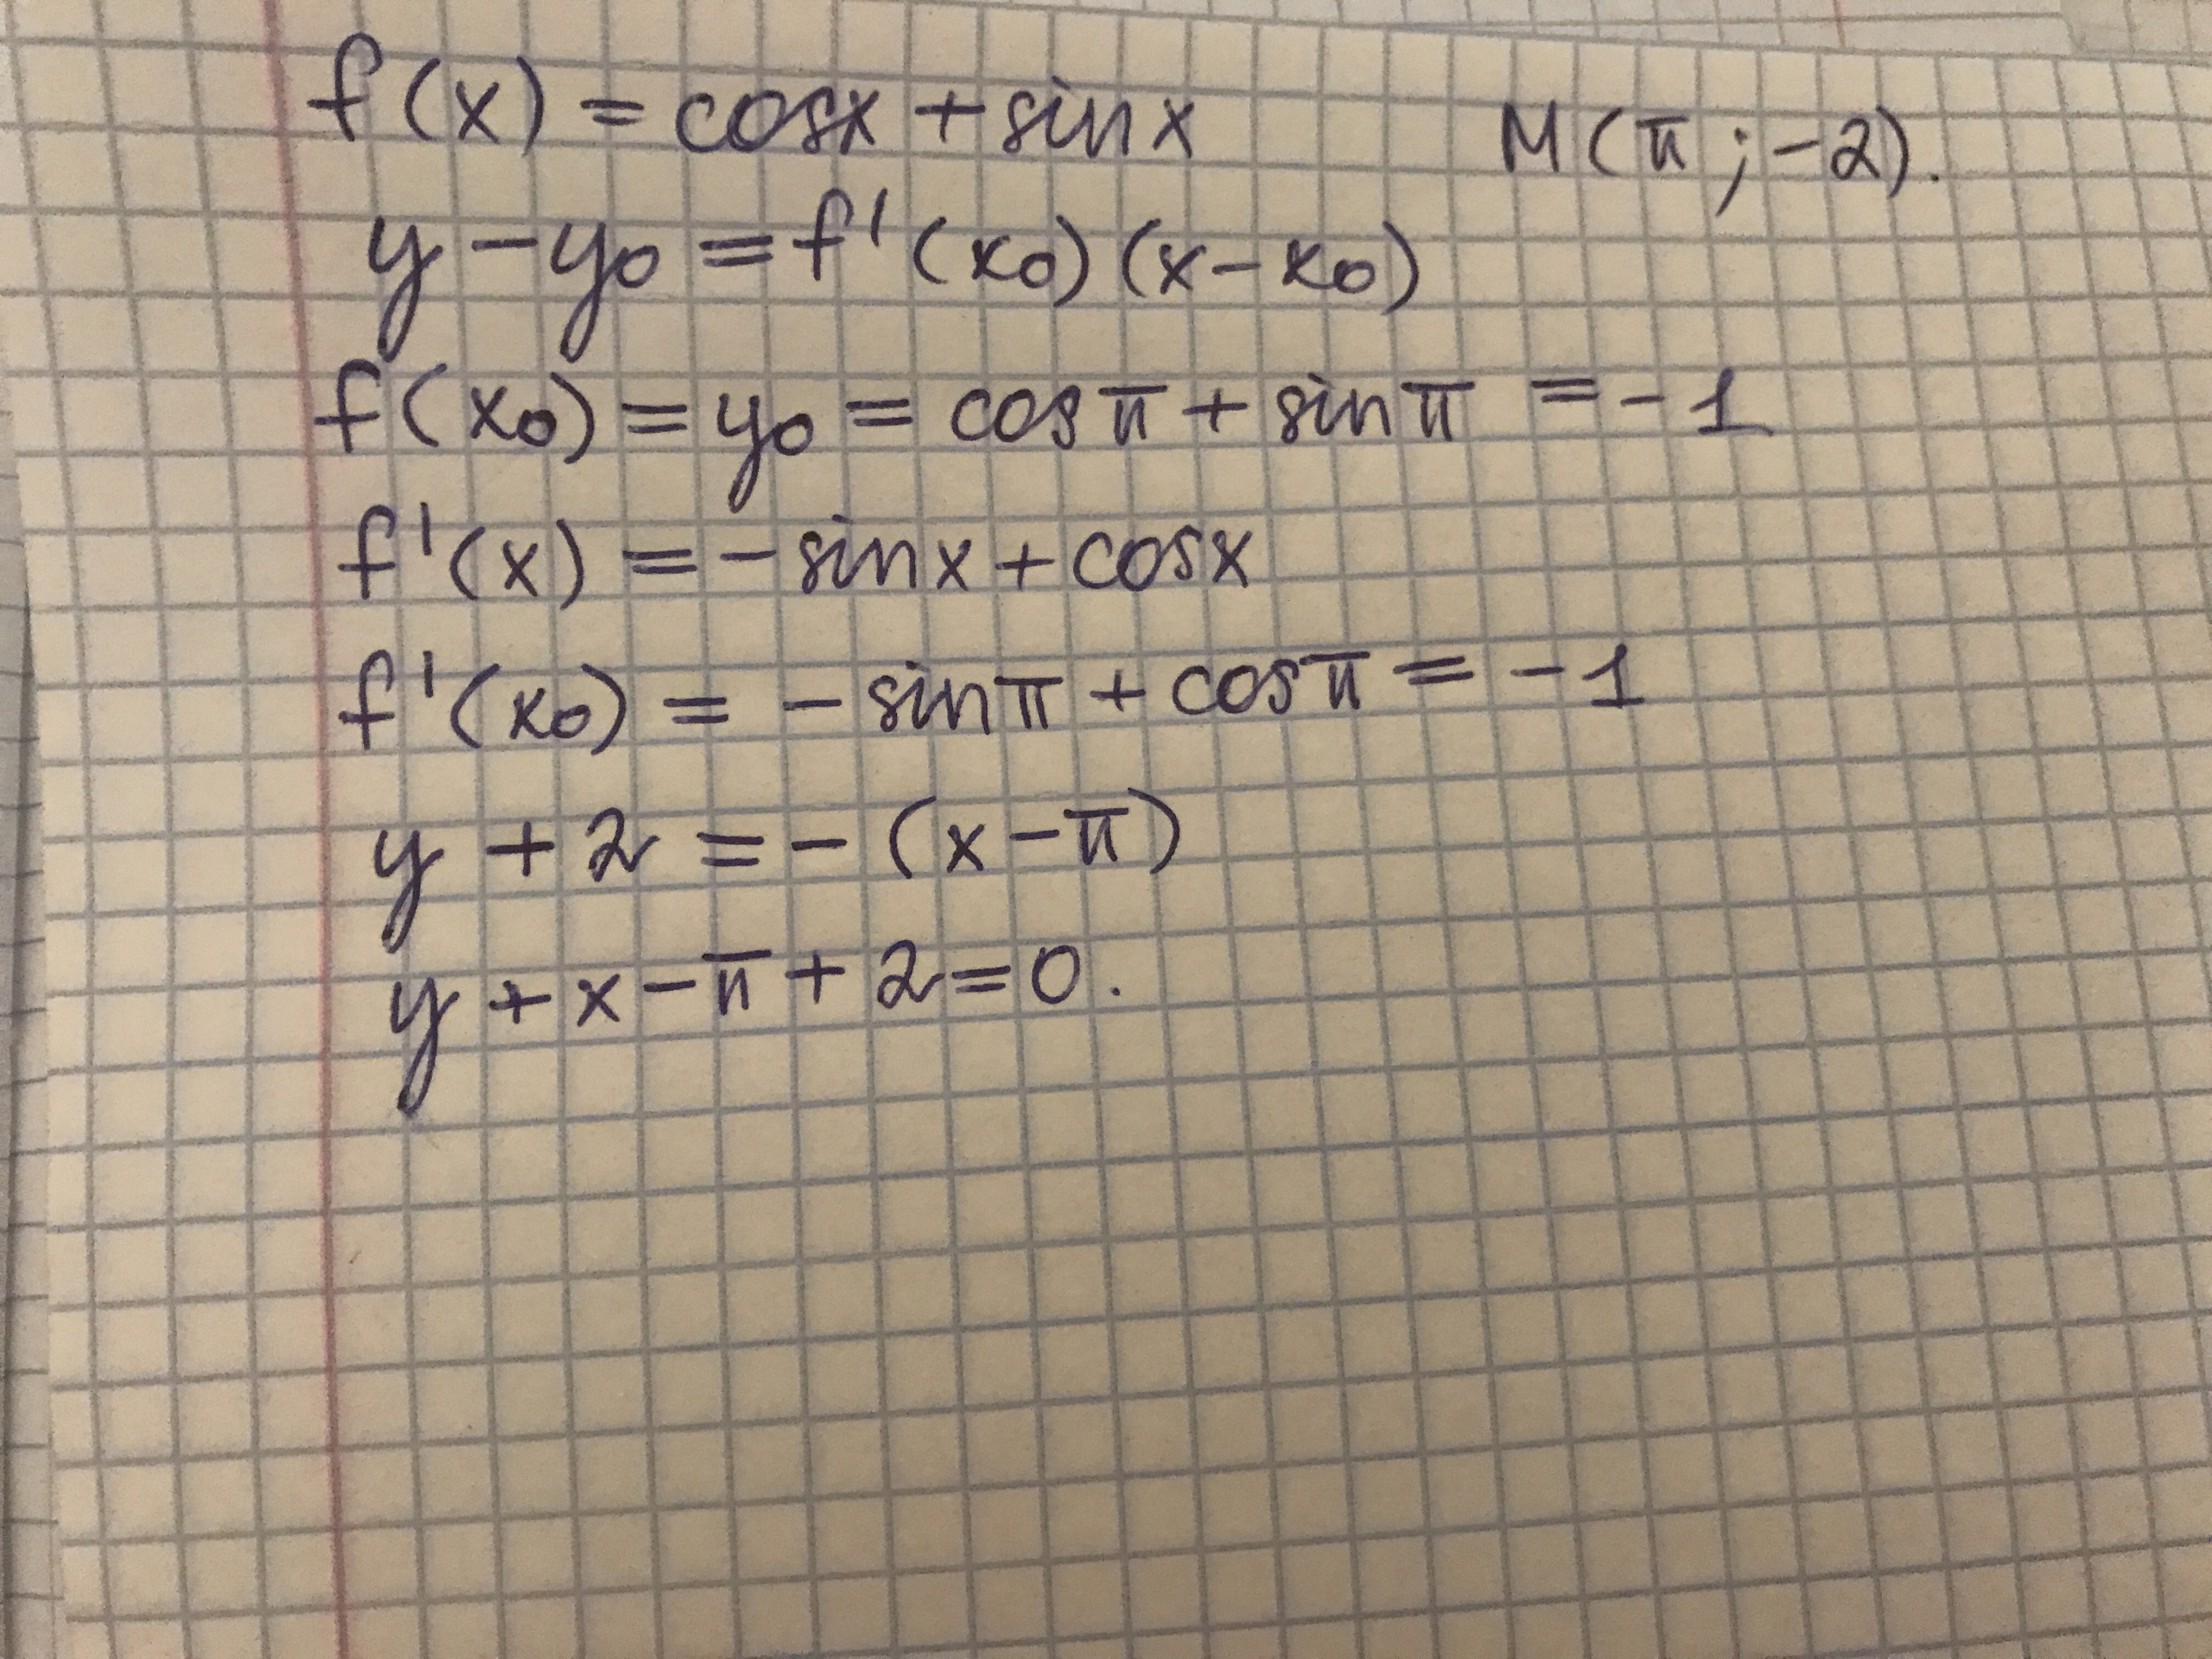 f(x) = cosx + sinx M(π; -2).
y - y₀ = f'(x₀)(x - x₀)
f(x₀) = y₀ = cosπ + sinπ = -1
f'(x) = - sinx + cosx
f'(x₀) = - sinπ + cosπ = -1
y + 2 = - (x - π)
y + x - π + 2 = 0.